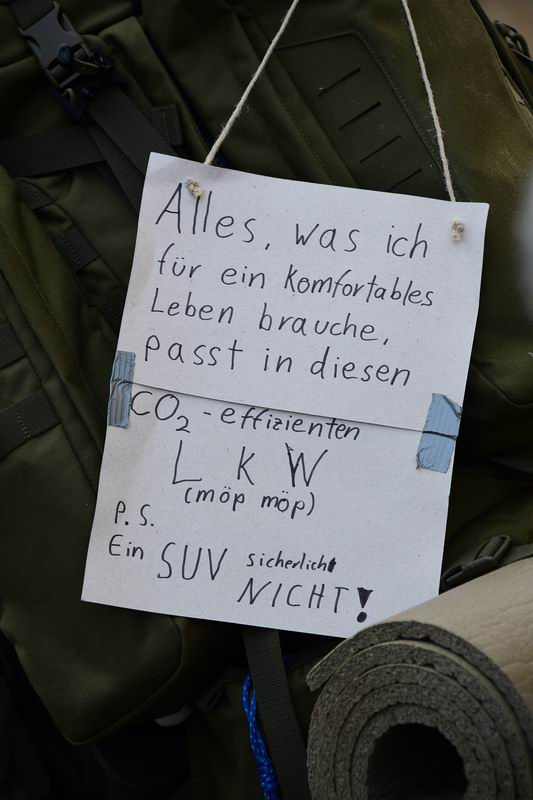 Alles, was ich
für ein komfortables
Leben brauche,
passt in diesen
CO₂-effizienten
LKW
(möp möp)
P.S.
Ein SUV sicherlich
NICHT!